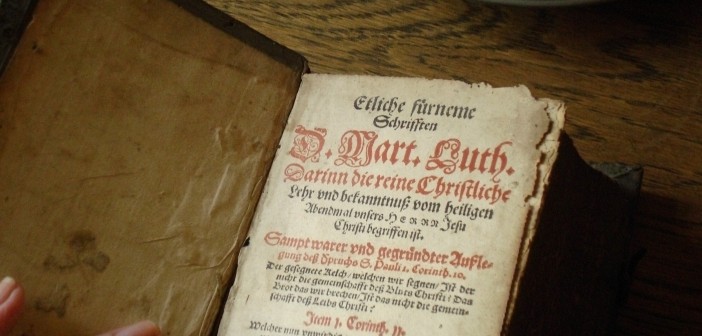 Etliche fürneme
Schrifften
D. Mart. Luth.
Darinn die reine Christliche
Lehr vnd bekanntnuß vom heiligen
Abendmal vnsers HERRN Jesu
Christi begriffen ist.
Sampt warer vnd gegründter Außle-
gung deß Spruchs S. Pauli 1. Corinth. 10.
Der gesegnete Kelch/ welchen wir segnen/ Ist der
nicht die gemeinschafft deß Bluts Christi? Das
Brot das wir brechen/ Ist das nicht die gemein-
schafft deß Leibs Christi?
Item 1. Corinth. 11.
Welcher nun vnwirdig